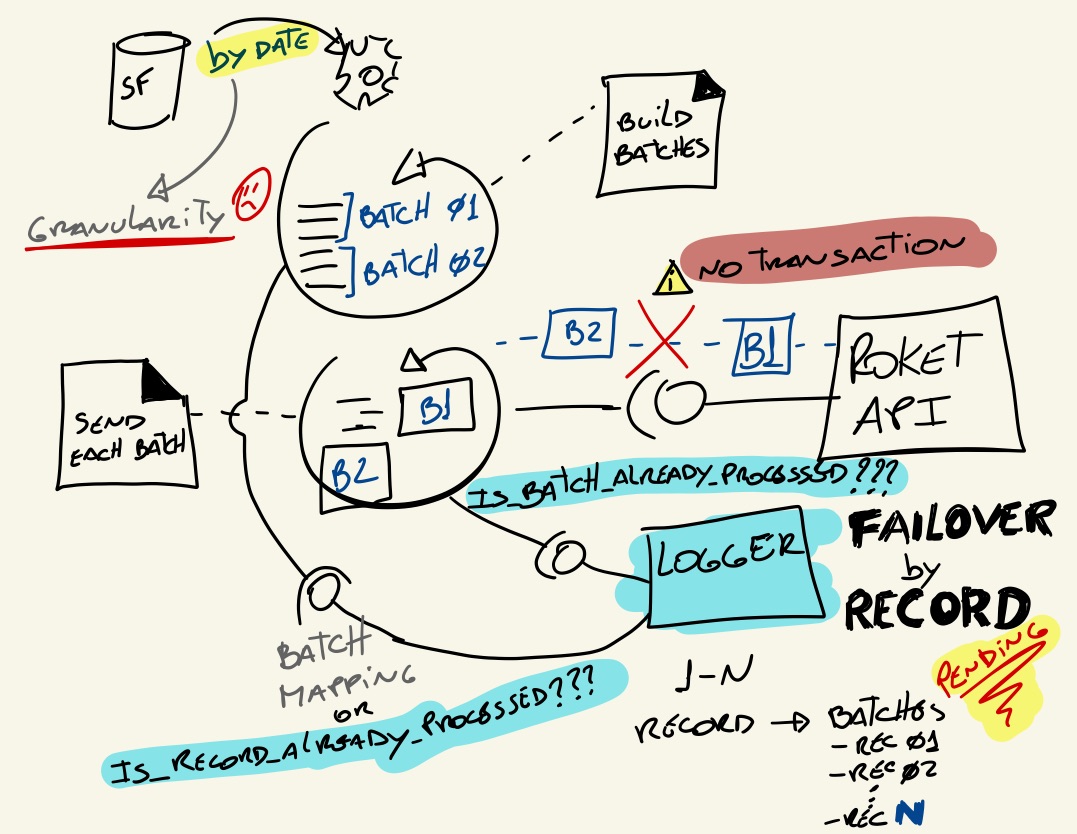 SF
by DATE
BUILD
BATCHES
GRANULARITY
BATCH 01
BATCH 02
NO TRANSACTION
B2
B1
ROKET
API
SEND
EACH BATCH
B1
B2
IS_BATCH_ALREADY_PROCESSED???
LOGGER
FAILOVER
by
RECORD
BATCH
MAPPING
OR
IS_RECORD_ALREADY_PROCESSED???
1-N
RECORD → BATCHES
PENDING
- REC 01
- REC 02
- REC N